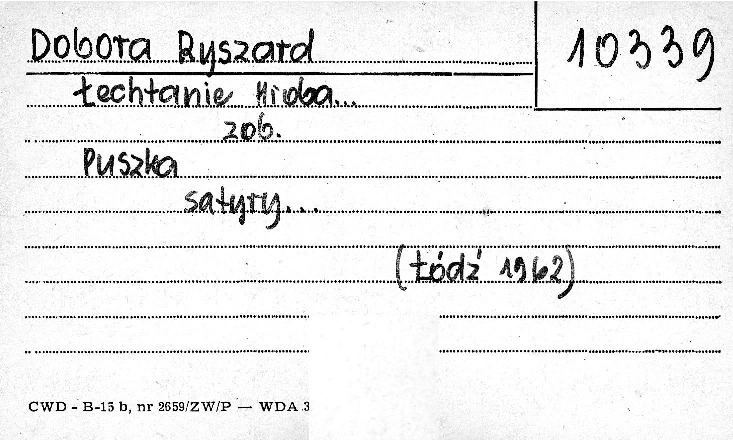 Dobora Ryszard
10339
Łechtanie Hioba...
zob.
Puszka
satyry...
(Łódź 1962)
CWD - B-15 b, nr 2659/ZW/P — WDA.3